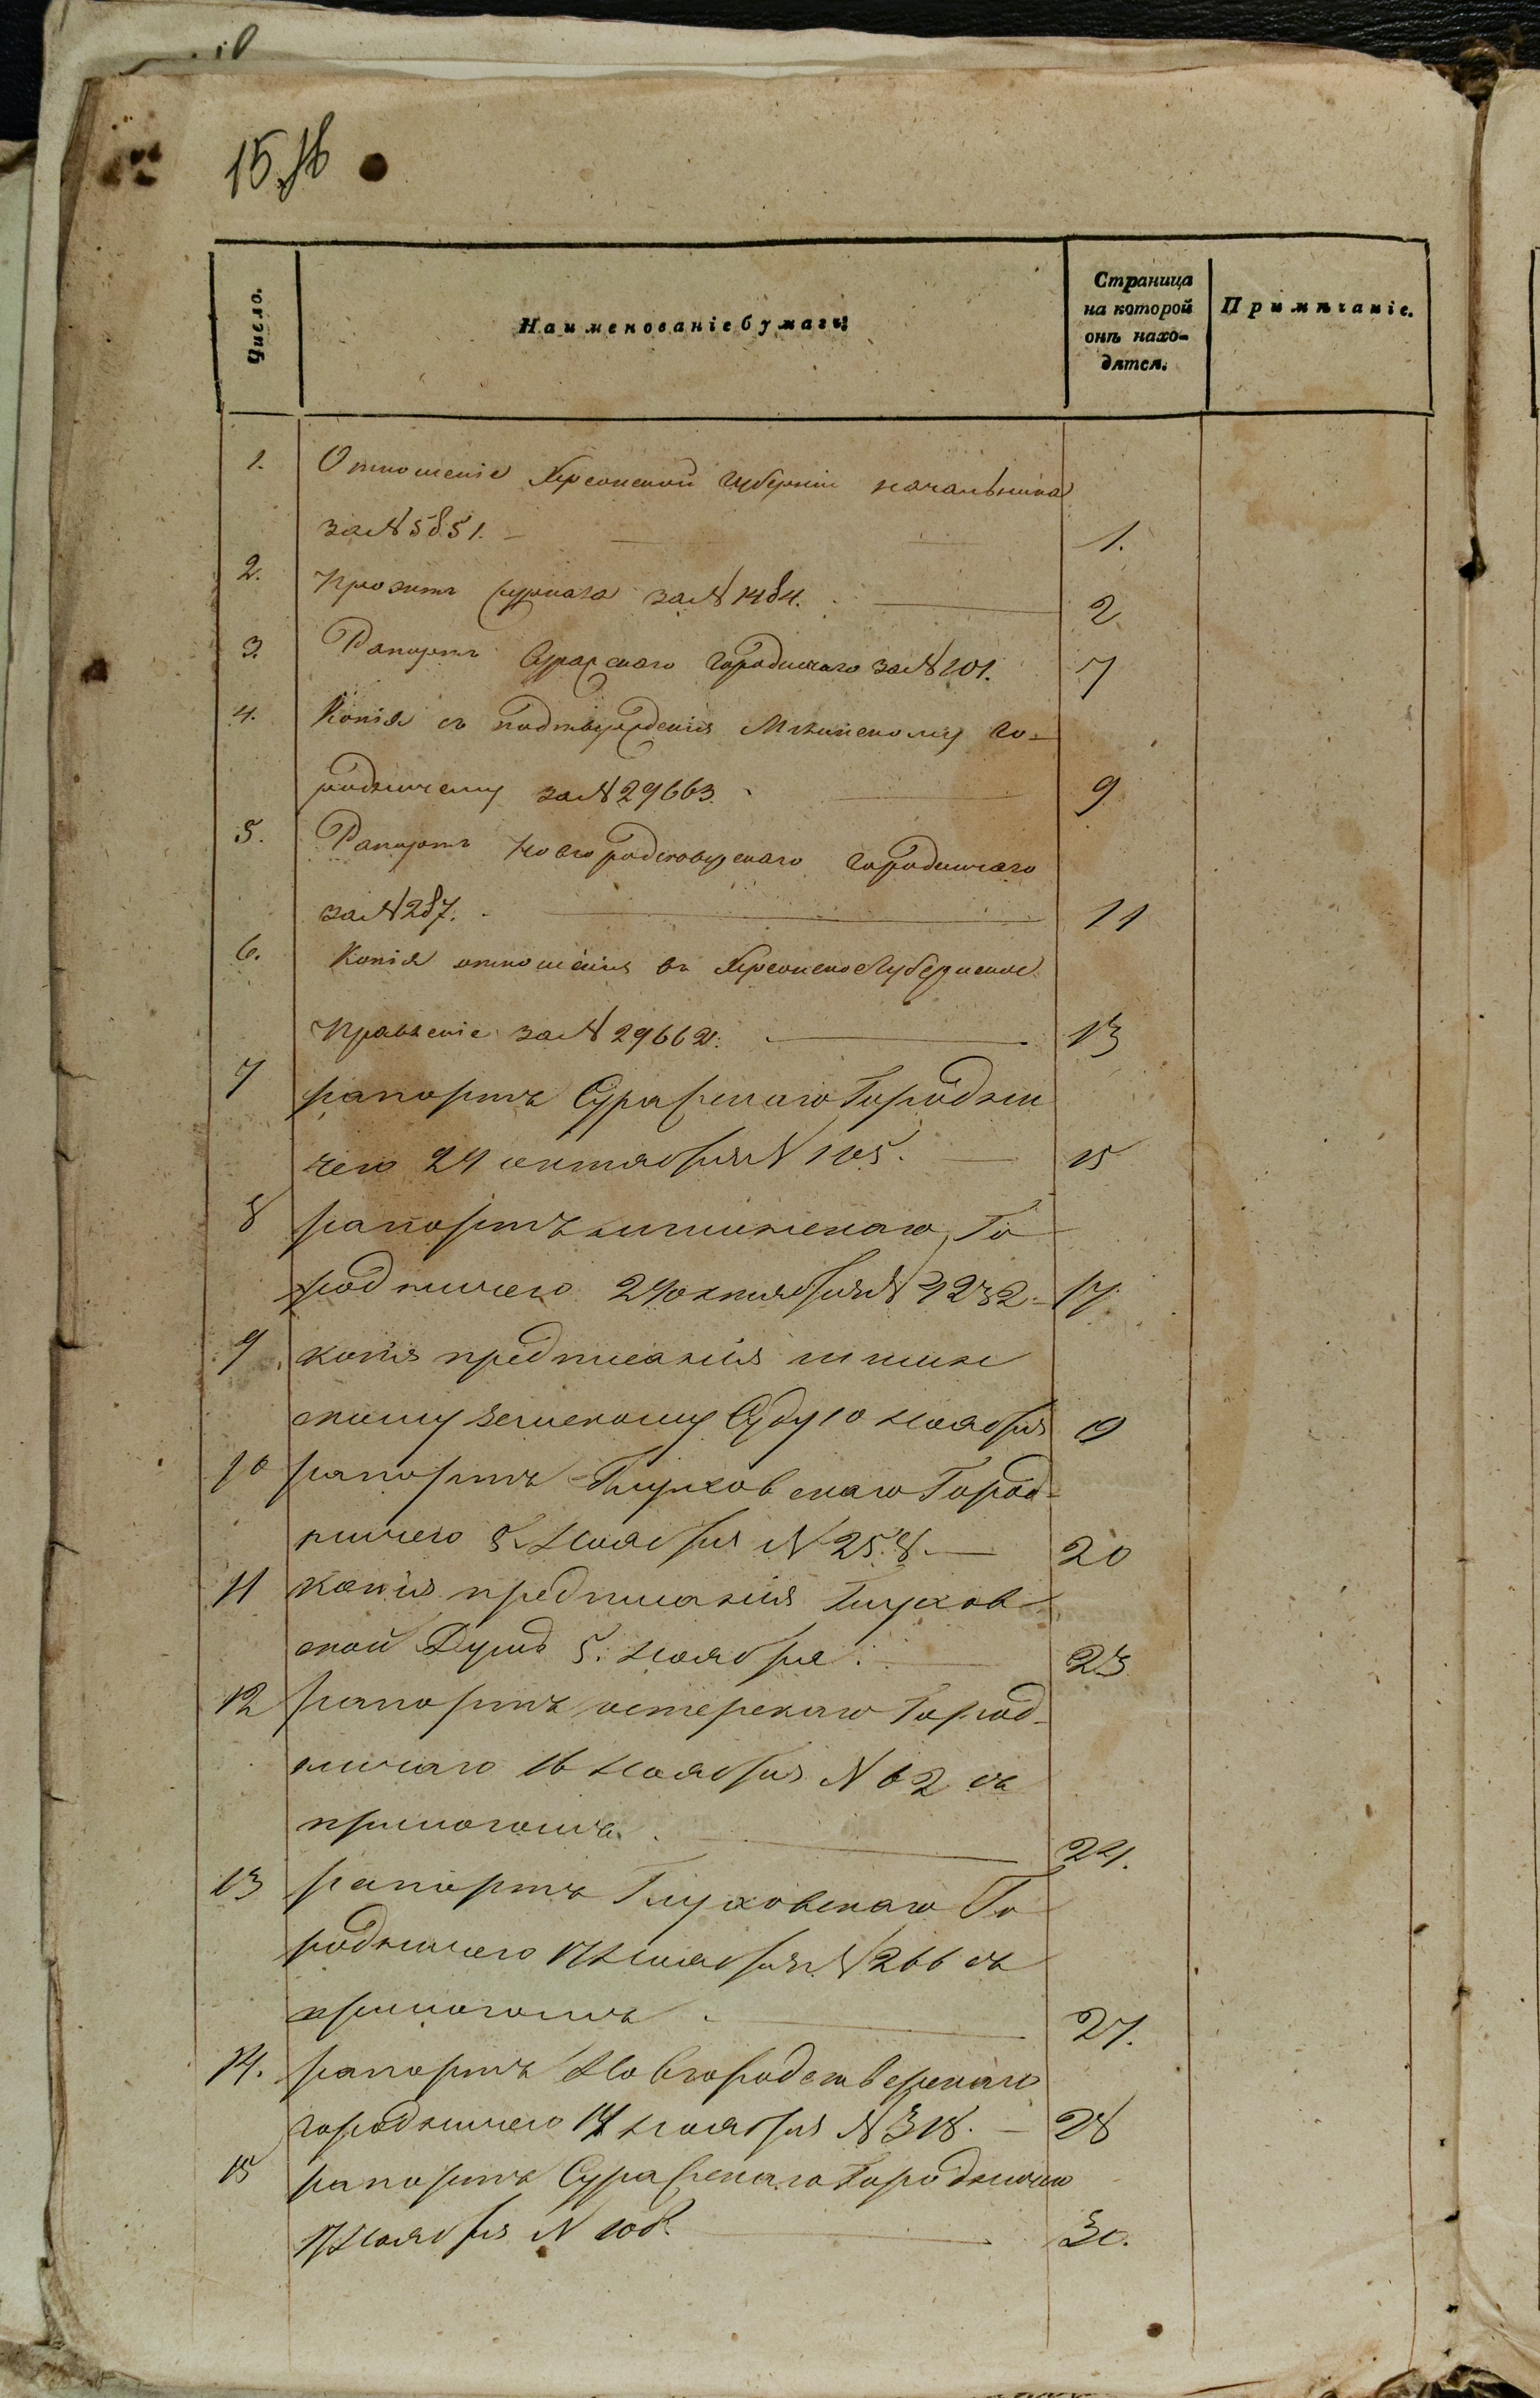 15.
Число.
Наименованіе бумагъ
Страница
на которой
онѣ нахо-
дятся.
Примѣчаніе.
1. Отношеніе Херсонской Губерніи начальника
за № 5851. 1.
2. журнала за № 1484. 2
3. Рапортъ Суражскаго Городничаго за № 101. 7
4. Копія съ подтвержденія Мглинскому Го-
родничему за № 29663. 9
5. Рапортъ Новгородсѣверскаго Городничаго
за № 287. 11
6. Копія отношенія въ Херсонское Губернское
Правленіе за № 29662. 13
7 рапортъ Суражскаго Городни
чего 24 октября № 105. 15
8 рапортъ мглинскаго Го
родничего 24 октября № 1232 17
9 копія предписанія мглин
скому земскому Суду 10 ноября 19
10 рапортъ Глуховскаго Город-
ничего 5 Ноября № 258. 20
11 копія предписанія Глухов
ской Думѣ 5. ноября. 23
12 рапортъ остерскаго Город-
ничаго 16 Ноября № 62 съ
24.
13 рапортъ Глуховскаго Го
родничего 17 Ноября № 266 съ
27.
14. рапортъ Новгородсѣверскаго
городничего 14 ноября № 318. 28
15 рапортъ Суражскаго Городничего
17 Ноября № 108. 30.